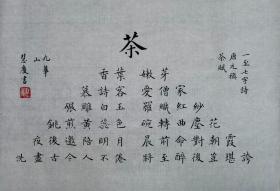 一至七字詩
唐元稹
茶賦
茶
香葉 嫩芽
慕詩客 愛僧家
碾雕白玉 羅織紅紗
銚煎黃蕊色 碗轉曲塵花
夜後邀陪明月 晨前命對朝霞
洗盡古今人不倦 將至醉後豈堪誇
九華
山
慶書